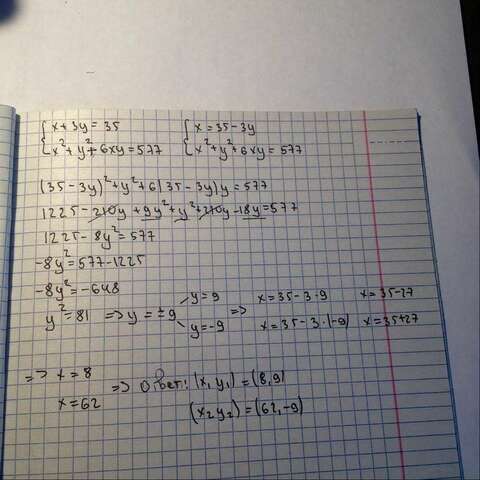 { x + 3y = 35 { x = 35 - 3y
{ x² + y² + 6xy = 577 { x² + y² + 6xy = 577
(35 - 3y)² + y² + 6(35 - 3y)y = 577
1225 - 210y + 9y² + y² + 210y - 18y = 577
1225 - 8y² = 577
-8y² = 577 - 1225
-8y² = -648
y² = 81 => y = ±9 y = 9 => x = 35 - 3·9 x = 35 - 27
y = -9 x = 35 - 3·(-9) x = 35 + 27
=> x = 8 => Ответ: (x₁ y₁) = (8, 9)
x = 62 (x₂ y₂) = (62, -9)